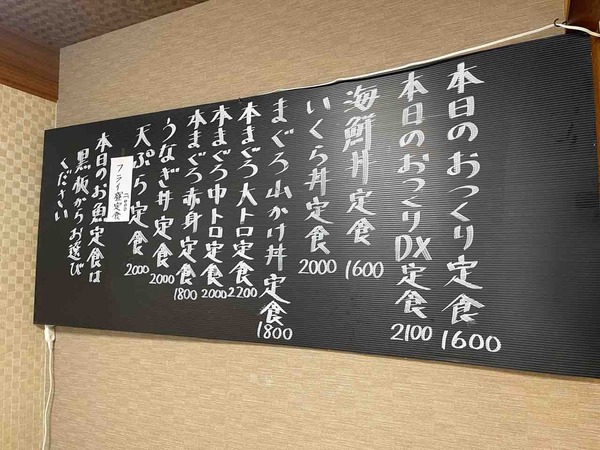 本日のおつくり定食 1600
本日のおつくりDX定食 2100
海鮮丼定食 1600
いくら丼定食 2000
まぐろ山かけ丼定食 1800
本まぐろ大トロ定食 2200
本まぐろ中トロ定食 2000
本まぐろ赤身定食 1800
うなぎ丼定食 2000
天ぷら定食 2000
フライ盛定食
本日のお魚定食は
黒板からお選び
ください